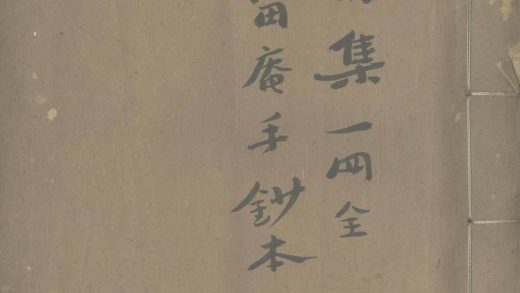 集一四全
庵手鈔本